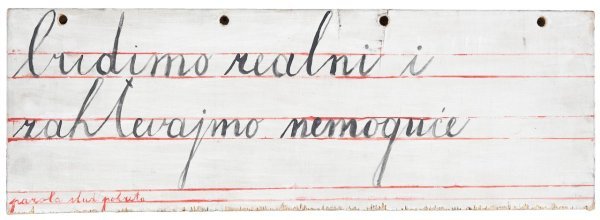 budimo realni i
zahtevajmo nemoguće
parola